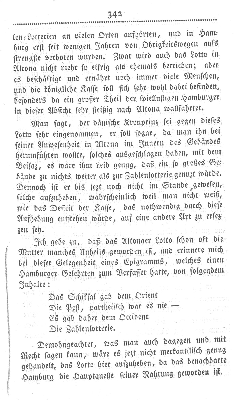 342
len-Lotterien an vielen Orten aufhörten, und in Ham-
burg erst seit wenigen Jahren von Obrigkeitswegen aufs
strengste verboten wurden. Zwar wird auch das Lotto in
Altona nicht mehr so eifrig als ehemals betrieben; aber
es beschäftigt und ernährt noch immer viele Menschen,
und die königliche Kasse soll sich sehr wohl dabei befinden,
besonders da ein großer Theil der spiellustigen Hamburger
in dieser Absicht sehr fleißig nach Altona wallfahrtet.
Man sagt, der dänische Kronprinz sei gegen dieses
Lotto sehr eingenommen, er soll sogar, da man ihn bei
seiner Anwesenheit in Altona im Innern des Gebäudes
herumführen wollte, solches ausgeschlagen haben, mit dem
Beisatz, es wäre ihm leid genug, daß ein so großes Ge-
bäude zu nichts weiter als zur Zahlenlotterie genutzt würde.
Dennoch ist er bis jetzt noch nicht im Stande gewesen,
solche aufzuheben, wahrscheinlich weil man nicht weiß,
wie das Defizit der Kasse, das nothwendig durch diese
Aufhebung entstehen würde, auf eine andere Art zu ersez-
zen sey.
Ich gebe zu, daß das Altonaer Lotto schon oft die
Mutter manches Unheils geworden ist, und erinnere mich
bei dieser Gelegenheit eines Epigramms, welches einen
Hamburger Gelehrten zum Verfasser hatte, von folgendem
Inhalte:
Das Schiksal gab dem Orient
Die Pest, partheiisch war es nie —
Es gab daher dem Occident
Die Zahlenlotterie.
Demohngeachtet, was man auch dagegen und mit
Recht sagen kann, wäre es jetzt nicht merkantilisch genug
gehandelt, das Lotto hier aufzuheben, da das benachbarte
Hamburg die Hauptquelle seiner Nahrung geworden ist.